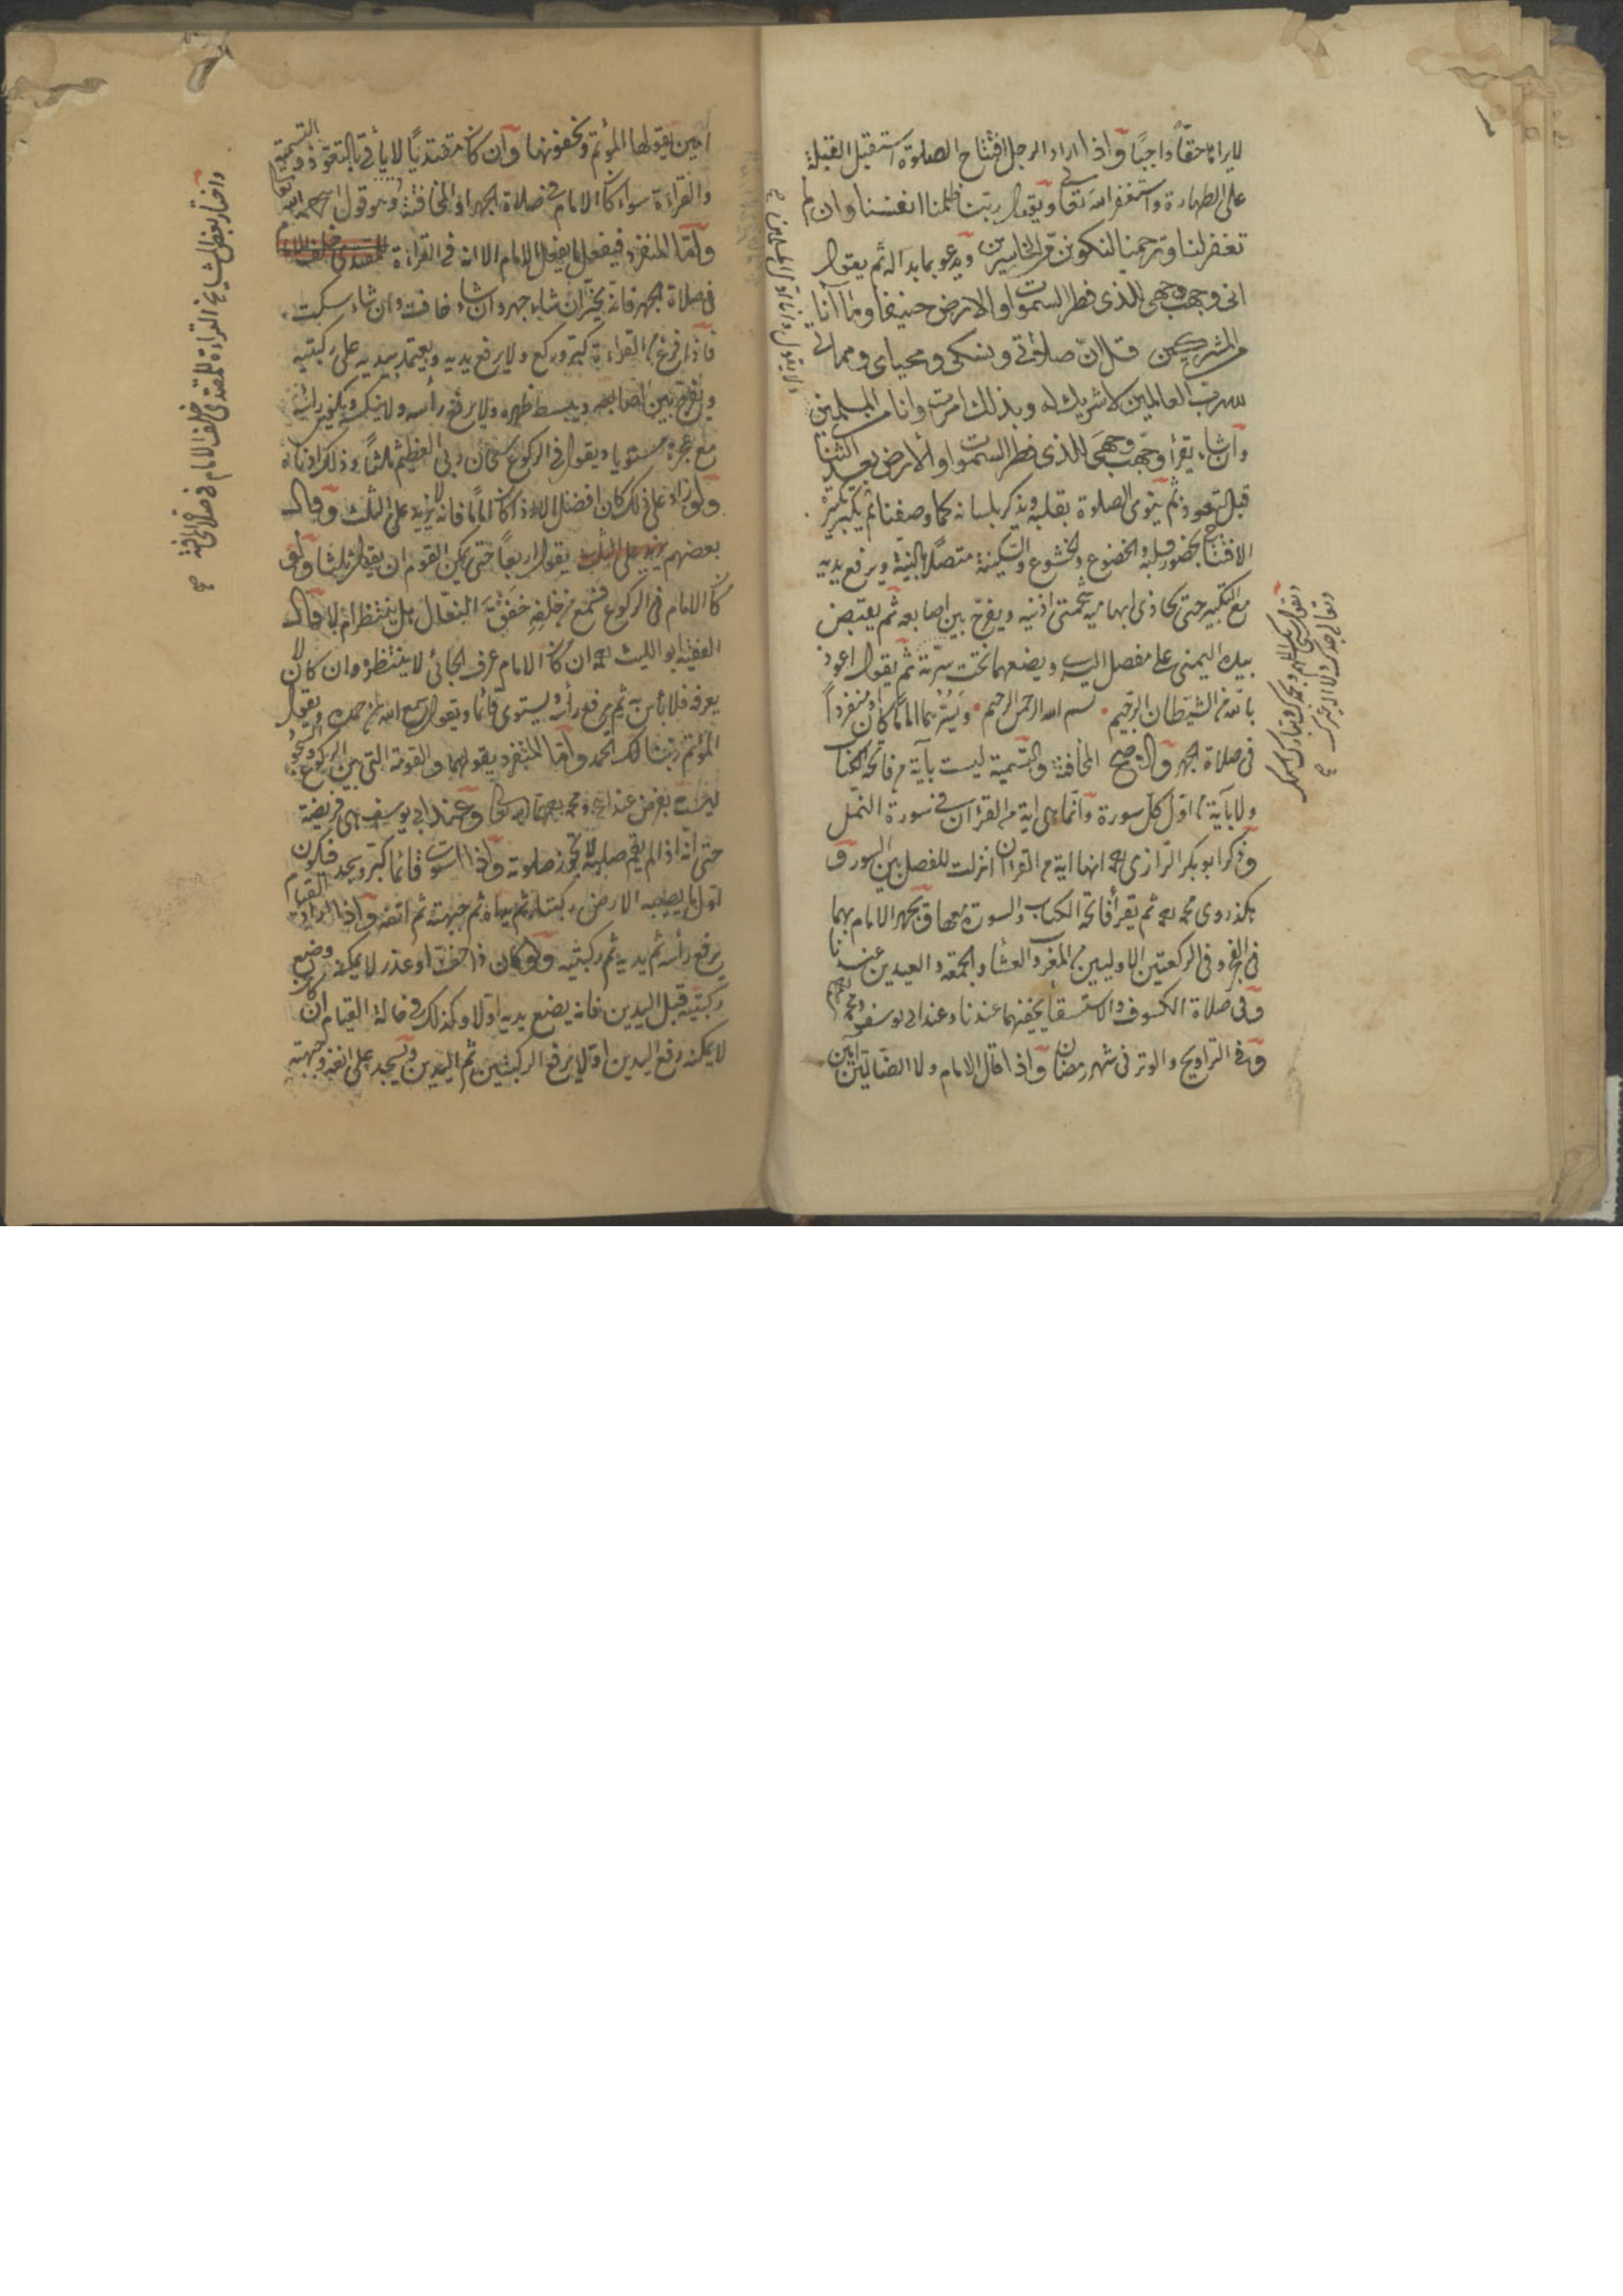 لا يراها حقا واجبا واذا اراد الرجل افتتاح الصلوة استقبل القبلة
على الطهارة واستغفر الله تعالى ويقول ربنا ظلمنا انفسنا وان لم
تغفر لنا وترحمنا لنكونن من الخاسرين ويدعو بما بدا له ثم يقول
انى وجهت وجهى للذى فطر السموات والارض حنيفا وما انا
من المشركين قل ان صلاتى ونسكى ومحياى ومماتى
لله رب العالمين لا شريك له وبذلك امرت وانا من المسلمين
وان شاء يقرأ وجهت وجهى للذى فطر السموات والارض بعد الثنا
قبل التعوذ ثم ينوى الصلوة بقلبه ويذكر بلسانه كما وصفنا ثم يكبر تكبيرة
الافتتاح بحضور قلبه والخضوع والخشوع والسكينة متصلا بالنية ويرفع يديه
مع التكبير حتى يحاذى ابهاميه شحمتى اذنيه ويفرج بين اصابعه ثم يقبض
بيده اليمنى على مفصل اليسرى ويضعهما تحت سرته ثم يقول اعوذ
بالله من الشيطان الرجيم بسم الله الرحمن الرحيم ويسر بهما اماما كان او منفردا
فى صلاة الجهر والصحيح المخافتة والتسمية ليست بآية من فاتحة الكتاب
ولا بآية من اول كل سورة وانما هى اية من القرآن فى سورة النمل
وذكر ابو بكر الرازى رحمه انها اية من القرآن انزلت للفصل بين السور و
هكذا روى محمد رحمه ثم يقرأ فاتحة الكتاب والسورة معها ويجهر الامام بهما
فى الفجر وفى الركعتين الاوليين من المغرب والعشا والجمعة والعيدين عندنا
وفى صلاة الكسوف والاستسقا يخفيهما عندنا وعند ابى يوسف ومحمد
وفى التراويح والوتر فى شهر رمضان واذا قال الامام ولا الضالين آمين
ولا يقول وانا اول المسلمين صح
ويقول سبحانك اللهم وبحمدك وتبارك اسمك
وتعالى جدك ولا اله غيرك صح
امين يقولها المؤتم ويخفونها وان كان مقتديا لا يأتى بالتعوذ والتسمية
والقراءة سواء كان الامام فى صلاة الجهر او المخافتة وهو قول
واما المنفرد فيفعل ما يفعل الامام الا انه فى القراءة
فى صلاة الجهر فانه يخير ان شاء جهر وان شاء خافت وان شاء سكت
فاذا فرغ من القراءة كبر وركع ولا يرفع يديه ويعتمد بيديه على ركبتيه
ويفرج بين اصابعه ويبسط ظهره ولا يرفع رأسه ولا ينكسه ويكون رأسه
مع عجزه مستويا ويقول فى الركوع سبحان ربى العظيم ثلثا وذلك ادناه
ولو زاد على ذلك كان افضل الا اذا كان اماما فانه لا يزيد على الثلث وقال
بعضهم يقول اربعا حتى يمكن القوم ان يقول ثلثا ولو
كان الامام فى الركوع فسمع من خلفه خفق النعال هل ينتظر ام لا قال
الفقيه ابو الليث رحمه ان كان الامام عرف الجائى لا ينتظره وان كان لا
يعرفه فلا بأس به ثم يرفع رأسه ويستوى قائما ويقول سمع الله لمن حمده ويقول
المؤتم ربنا لك الحمد واما المنفرد يقولهما والقومة التى بين الركوع والسجود
ليست بفرض عند ابى ومحمد رحمهما الله تعالى وعند ابى يوسف هى فريضة
حتى انه اذا لم يقم صلبه لا تجوز صلوته واذا استوى قائما كبر ويسجد فيكون
اول ما يصيب الارض ركبتاه ثم يداه ثم جبهته ثم انفه واذا اراد القيام
يرفع رأسه ثم يديه ثم ركبتيه ولو كان ذا خف او عذر لا يمكنه وضع
ركبتيه قبل اليدين فانه يضع يديه اولا وكذلك فى حالة القيام ان كان
لا يمكنه رفع اليدين اولا يرفع الركبتين ثم اليدين ويسجد على انفه وجبهته
واختار بعض المشايخ القراءة للمقتدى خلف الامام فى صلاة المخافتة صح